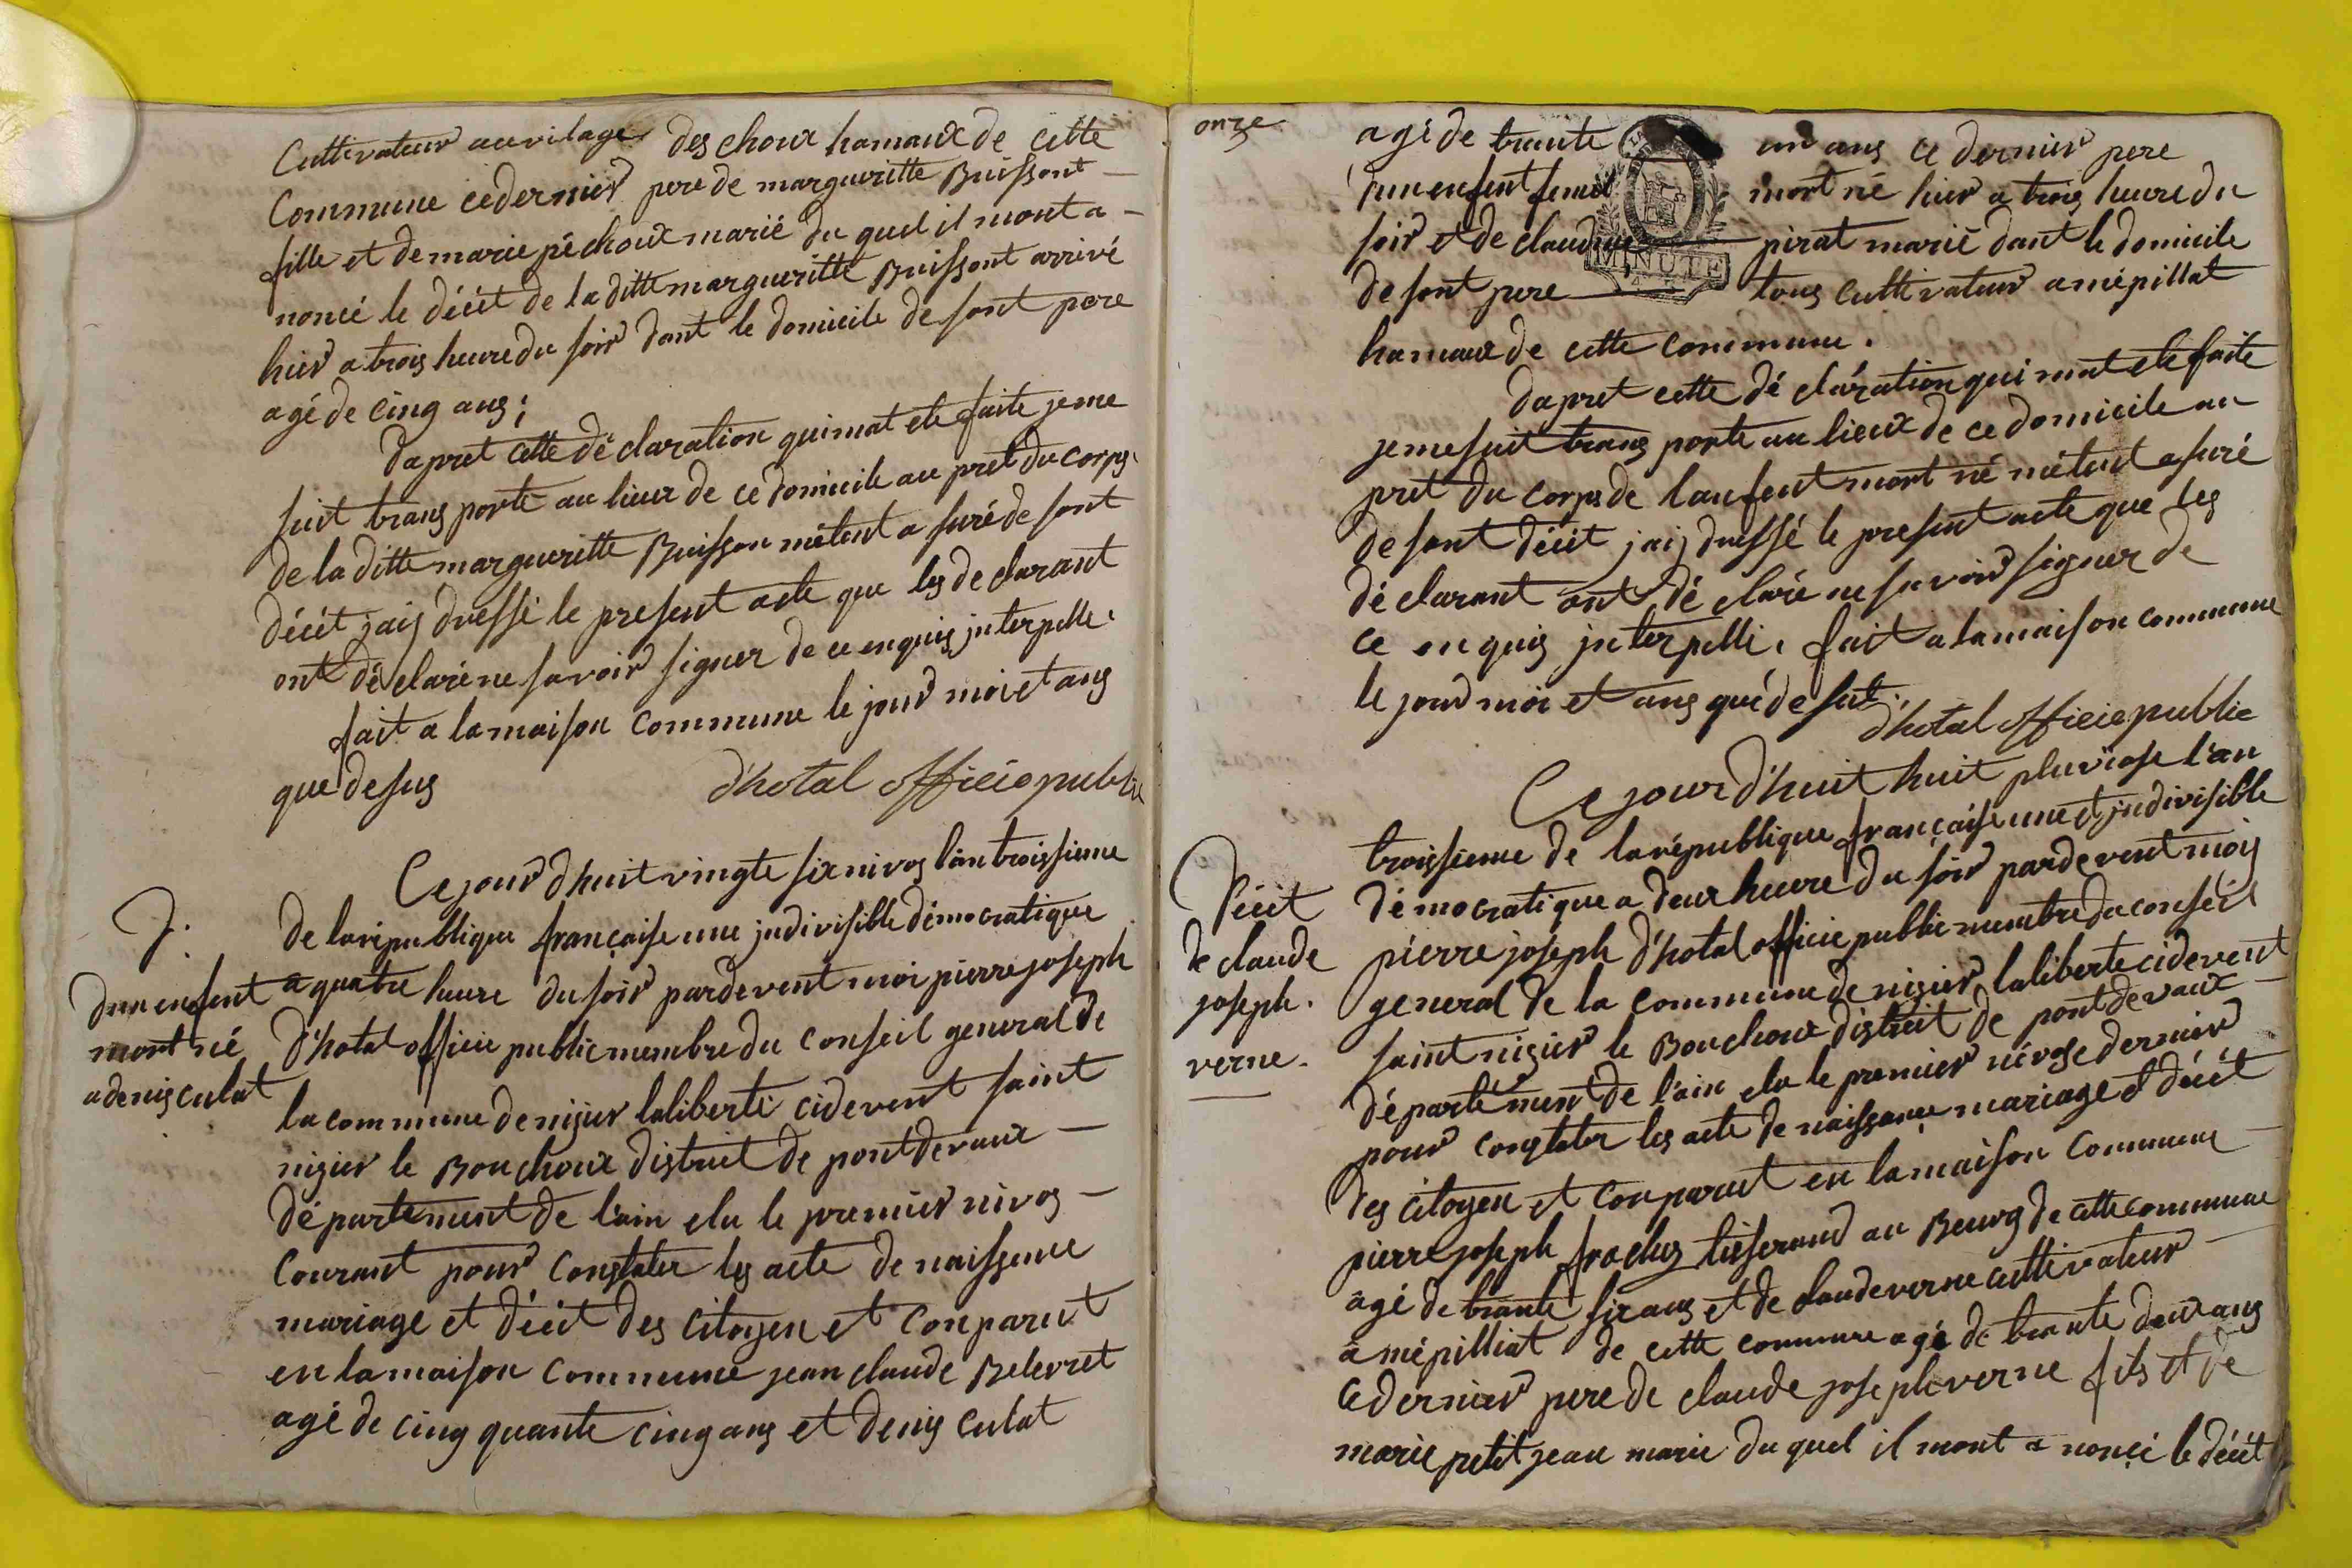 Cultivateur au vilage des choux hamaux de cette
Commune ce dernier pere de margueritte Buissont
fille et de marie péchoux marié du quel il mont a
noncé le décet de la ditte margueritte Buissont arrivé
hier a trois heure du soir dant le domicile de sont pere
agé de cinq ans ;
dapret cette déclaration qui mat ete faite je me
suit transporté au lieux de ce domicile au pret du corps
de la ditte margueritte Buisson métent asuré de sont
décet jais dressé le present acte que les declarant
ont déclaré ne savoir signer de ce enquis interpellé.
fait a la maison commune le jour mois et ans
que desus
d'hotal officié public
Ce jour dhuit vingte six nivos l'an troissieme
de la république française une indivisible démocratique
a quatre heure du soir pardevent moi pierre joseph
d'hotal officié public membre du conseil general de
la commune de nizier laliberté cidevent saint
nizier le Bouchoux distric de pont devaux
département de l'ain elu le premier nivos
Courant pour constater les acte de naissance
mariage et décet des citoyen et conparut
en la maison commune jean claude Belevret
agé de cinq quante cinq ans et denis culat
D.
dun enfent
mort né
a denis culat
onze
agé de trante un ans ce dernier pere
dun enfent femel mort né hier a trois heure du
soir et de claudine pirat marié dant le domicile
de sont pere tous cultivateur a mépillat
hamaux de cette commune.
MINUTE
dapret cette déclaration qui mat ete faite
je me suit transporté au lieux de ce domicile au
pret du corps de lanfent mort né métent asuré
de sont décet jaij dressé le present acte que les
déclarant ont déclaré ne savoir signer de
ce enquis interpellé. fait a la maison commune
le jour moi et ans que desut.
d'hotal officié public
Ce jour d'huit huit pluviose l'an
troissieme de la république française une et indivisible
démocratique a deux heure du soir pardevent mois
pierre joseph d'hotal officié public membre du conseil
general de la commune de nizier laliberté cidevent
saint nizier le Bouchoux distric de pont devaux
département de l'ain elu le premier nivose dernier
pour constater les acte de naissance mariage et décet
des citoyen et conparut en la maison commune
pierre joseph frochez tisserand au Beurg de cette commune
agé de trante six ans et de claude verne cultivateur
a mépilliat de cette commune agé de trante deux ans
ce dernier pere de claude joseph verne fils et de
marie petitjean marié du quel il mont a noncé le décet
Décet
de claude
joseph.
verne.